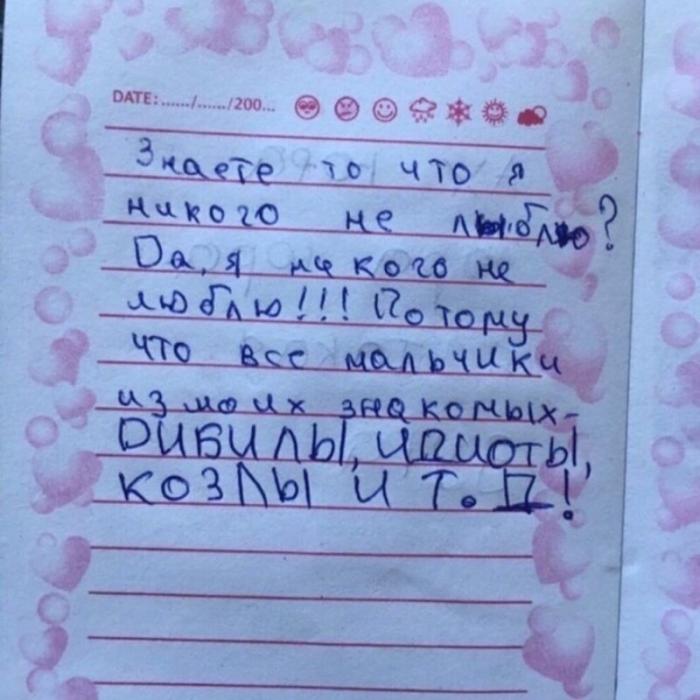 DATE:....../....../200...
Знаете то что я
никого не люблю?
Да, я никого не
люблю!!! Потому
что все мальчики
из моих знакомых-
ДИБИЛЫ, ИДИОТЫ,
КОЗЛЫ И Т.Д!